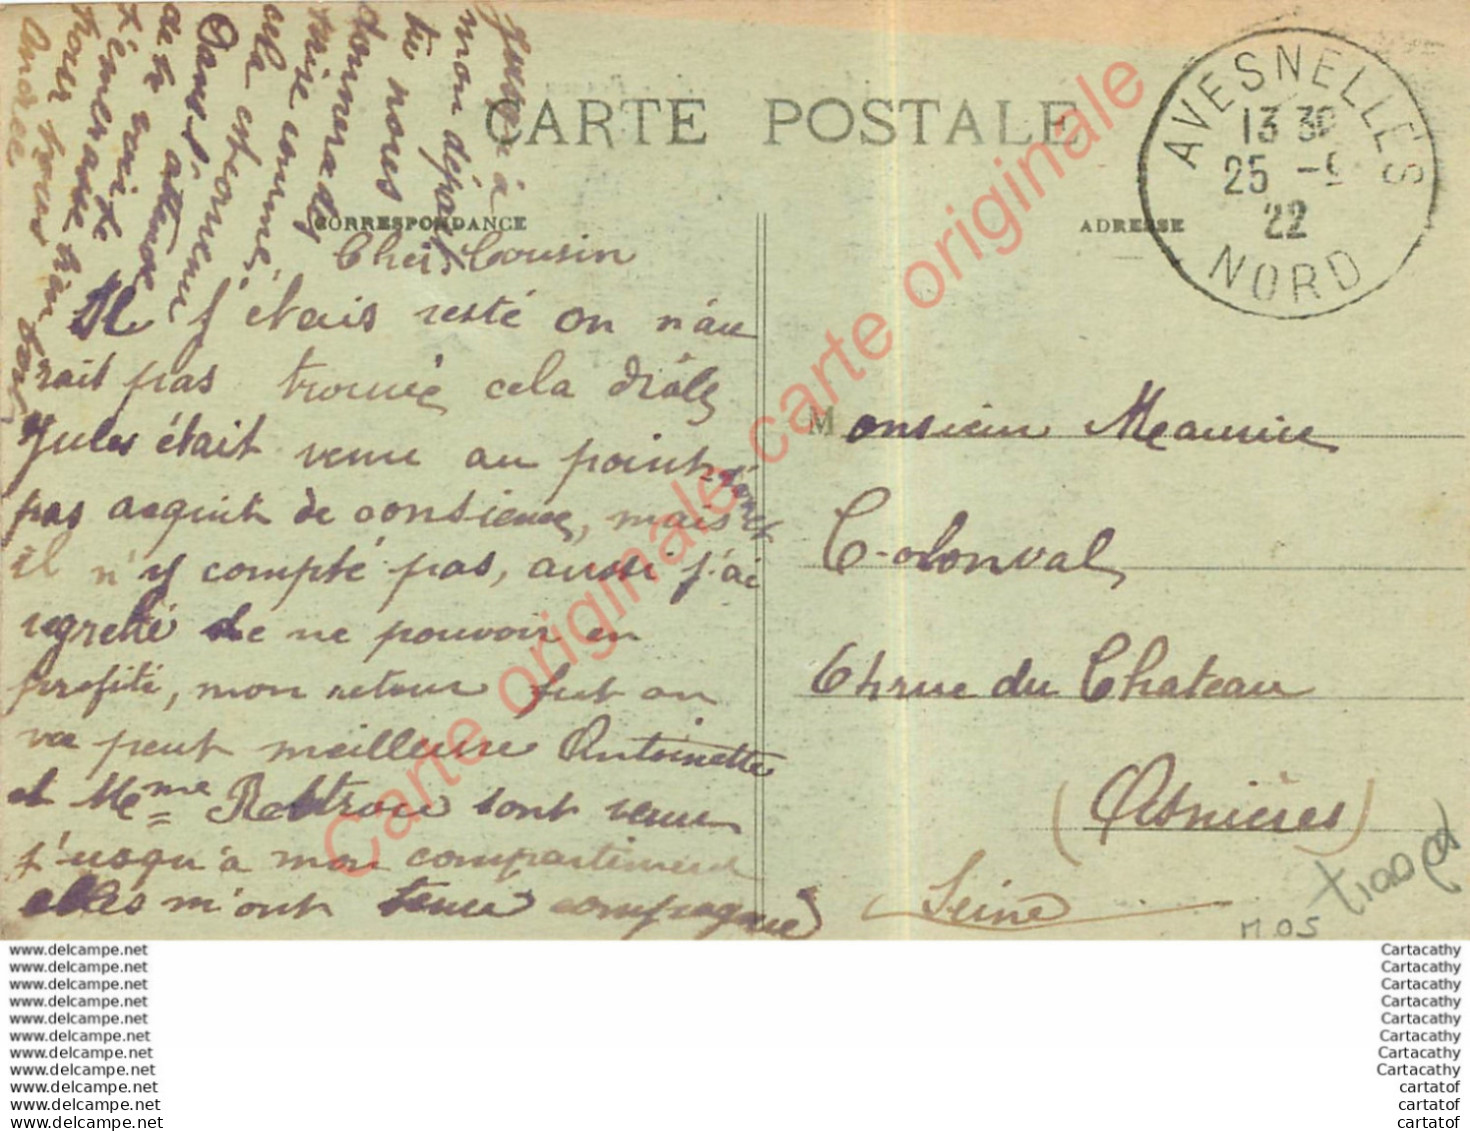 CARTE POSTALE
CORRESPONDANCE
ADRESSE
AVESNELLES
13 30
25 -9
22
NORD
Cher Cousin
Si j'étais resté on n'au
rait pas trouvé cela drôle
Jules était venu au point
pas acquit de consience, mais
il n'y compté pas, aussi j'ai
regretté de ne pouvoir en
profité, mon retour fut on
ne peut meilleure Antoinette
et Mme Rebtrou sont venue
j'usqu'à mon compartiment
elles m'ont tenue compagnie
jusqu'à
mon départ
tu nous
donnera de
mire comme
cela
Dans l'
attense
de te voir
t'embrasse
pour
Andrée
Monsieur Meaurice
Colonval
6 rue du Chateau
(Asnières)
Seine
M05
Carte originale carte originale carte originale
www.delcampe.net
www.delcampe.net
www.delcampe.net
www.delcampe.net
www.delcampe.net
www.delcampe.net
www.delcampe.net
www.delcampe.net
www.delcampe.net
www.delcampe.net
www.delcampe.net
Cartacathy
Cartacathy
Cartacathy
Cartacathy
Cartacathy
Cartacathy
Cartacathy
Cartacathy
cartatof
cartatof
cartatof